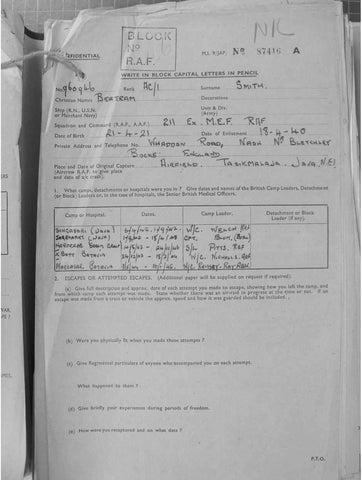 N/C
BLOCK
Nº
R.A.F.
CONFIDENTIAL
M.I. 9/JAP. Nº 87416 A
WRITE IN BLOCK CAPITAL LETTERS IN PENCIL
No. 960946 Rank AC/1 Surname SMITH.
Christian Names BERTRAM Decorations
Ship (R.N., U.S.N. or Merchant Navy) Unit & Div. (Army)
Squadron and Command (R.A.F., A.A.F.) 211 Ex M.E.F. RAF
Date of Birth 21-4-21 Date of Enlistment 18-4-40
Private Address and Telephone No. WHADDON ROAD, NASH Nº BLETCHLEY
BUCKS ENGLAND
Place and Date of Original Capture AIRFIELD. TASIKMALAJA. JAVA N.EI
(Aircrew R.A.F. to give place
and date of a/c crash).
1. What camps, detachments or hospitals were you in? Give dates and names of the British Camp Leaders, Detachment
(or Block) Leaders or, in the case of hospitals, the Senior British Medical Officers.
Camp or Hospital. Dates. Camp Leader. Detachment or Block Leader (if any).
(JAVA) W/C. WELCH RAF
(JAVA) CPT.
S/L PITTS. RAF
BATAVIA W/C. NICHOLS. RAF
BATAVIA W/C
2. ESCAPES OR ATTEMPTED ESCAPES. (Additional paper will be supplied on request if required).
(a) Give full description and approx. date of each attempt you made to escape, showing how you left the camp, and
from which camp each attempt was made. State whether there was an air-raid in progress at the time or not. If an
escape was made from a train or vehicle the approx. speed and how it was guarded should be included.
(b) Were you physically fit when you made these attempts ?
(c) Give Regimental particulars of anyone who accompanied you on each attempt.
What happened to them ?
(d) Give briefly your experiences during periods of freedom.
(e) How were you recaptured and on what date ?
P.T.O.